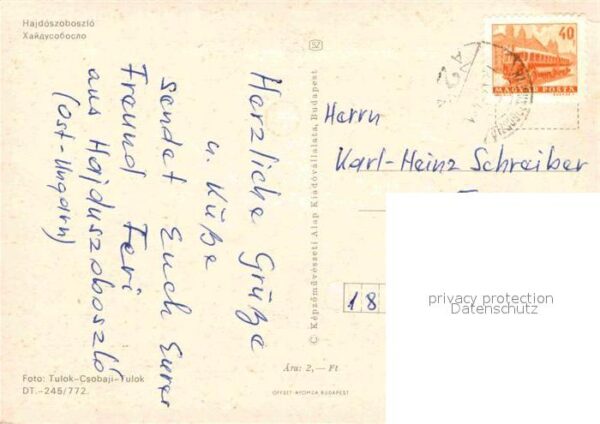 Hajdószoboszló
Хайдусобосло
Herzliche Grüße
u. Küße
sendet Euch Eurer
Freund Feri
aus Hajduszoboszló
(Ost-Ungarn)
Foto: Tulok-Csobaji-Tulok
DT.-245/772.
SZ
© Képzőművészeti Alap Kiadóvállalata, Budapest
Ára: 2,— Ft
OFFSET NYOMDA BUDAPEST
40
MAGYAR POSTA
Herrn
Karl-Heinz Schreiber
18
privacy protection
Datenschutz